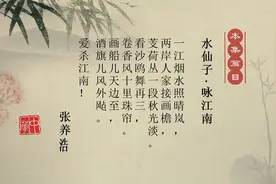 本集篇目
水仙子·咏江南
一江烟水照晴岚，
两岸人家接画檐，
芰荷丛一段秋光淡。
看沙鸥舞再三，
卷香风十里珠帘。
画船儿天边至，
酒旗儿风外飐。
爱杀江南！
张养浩